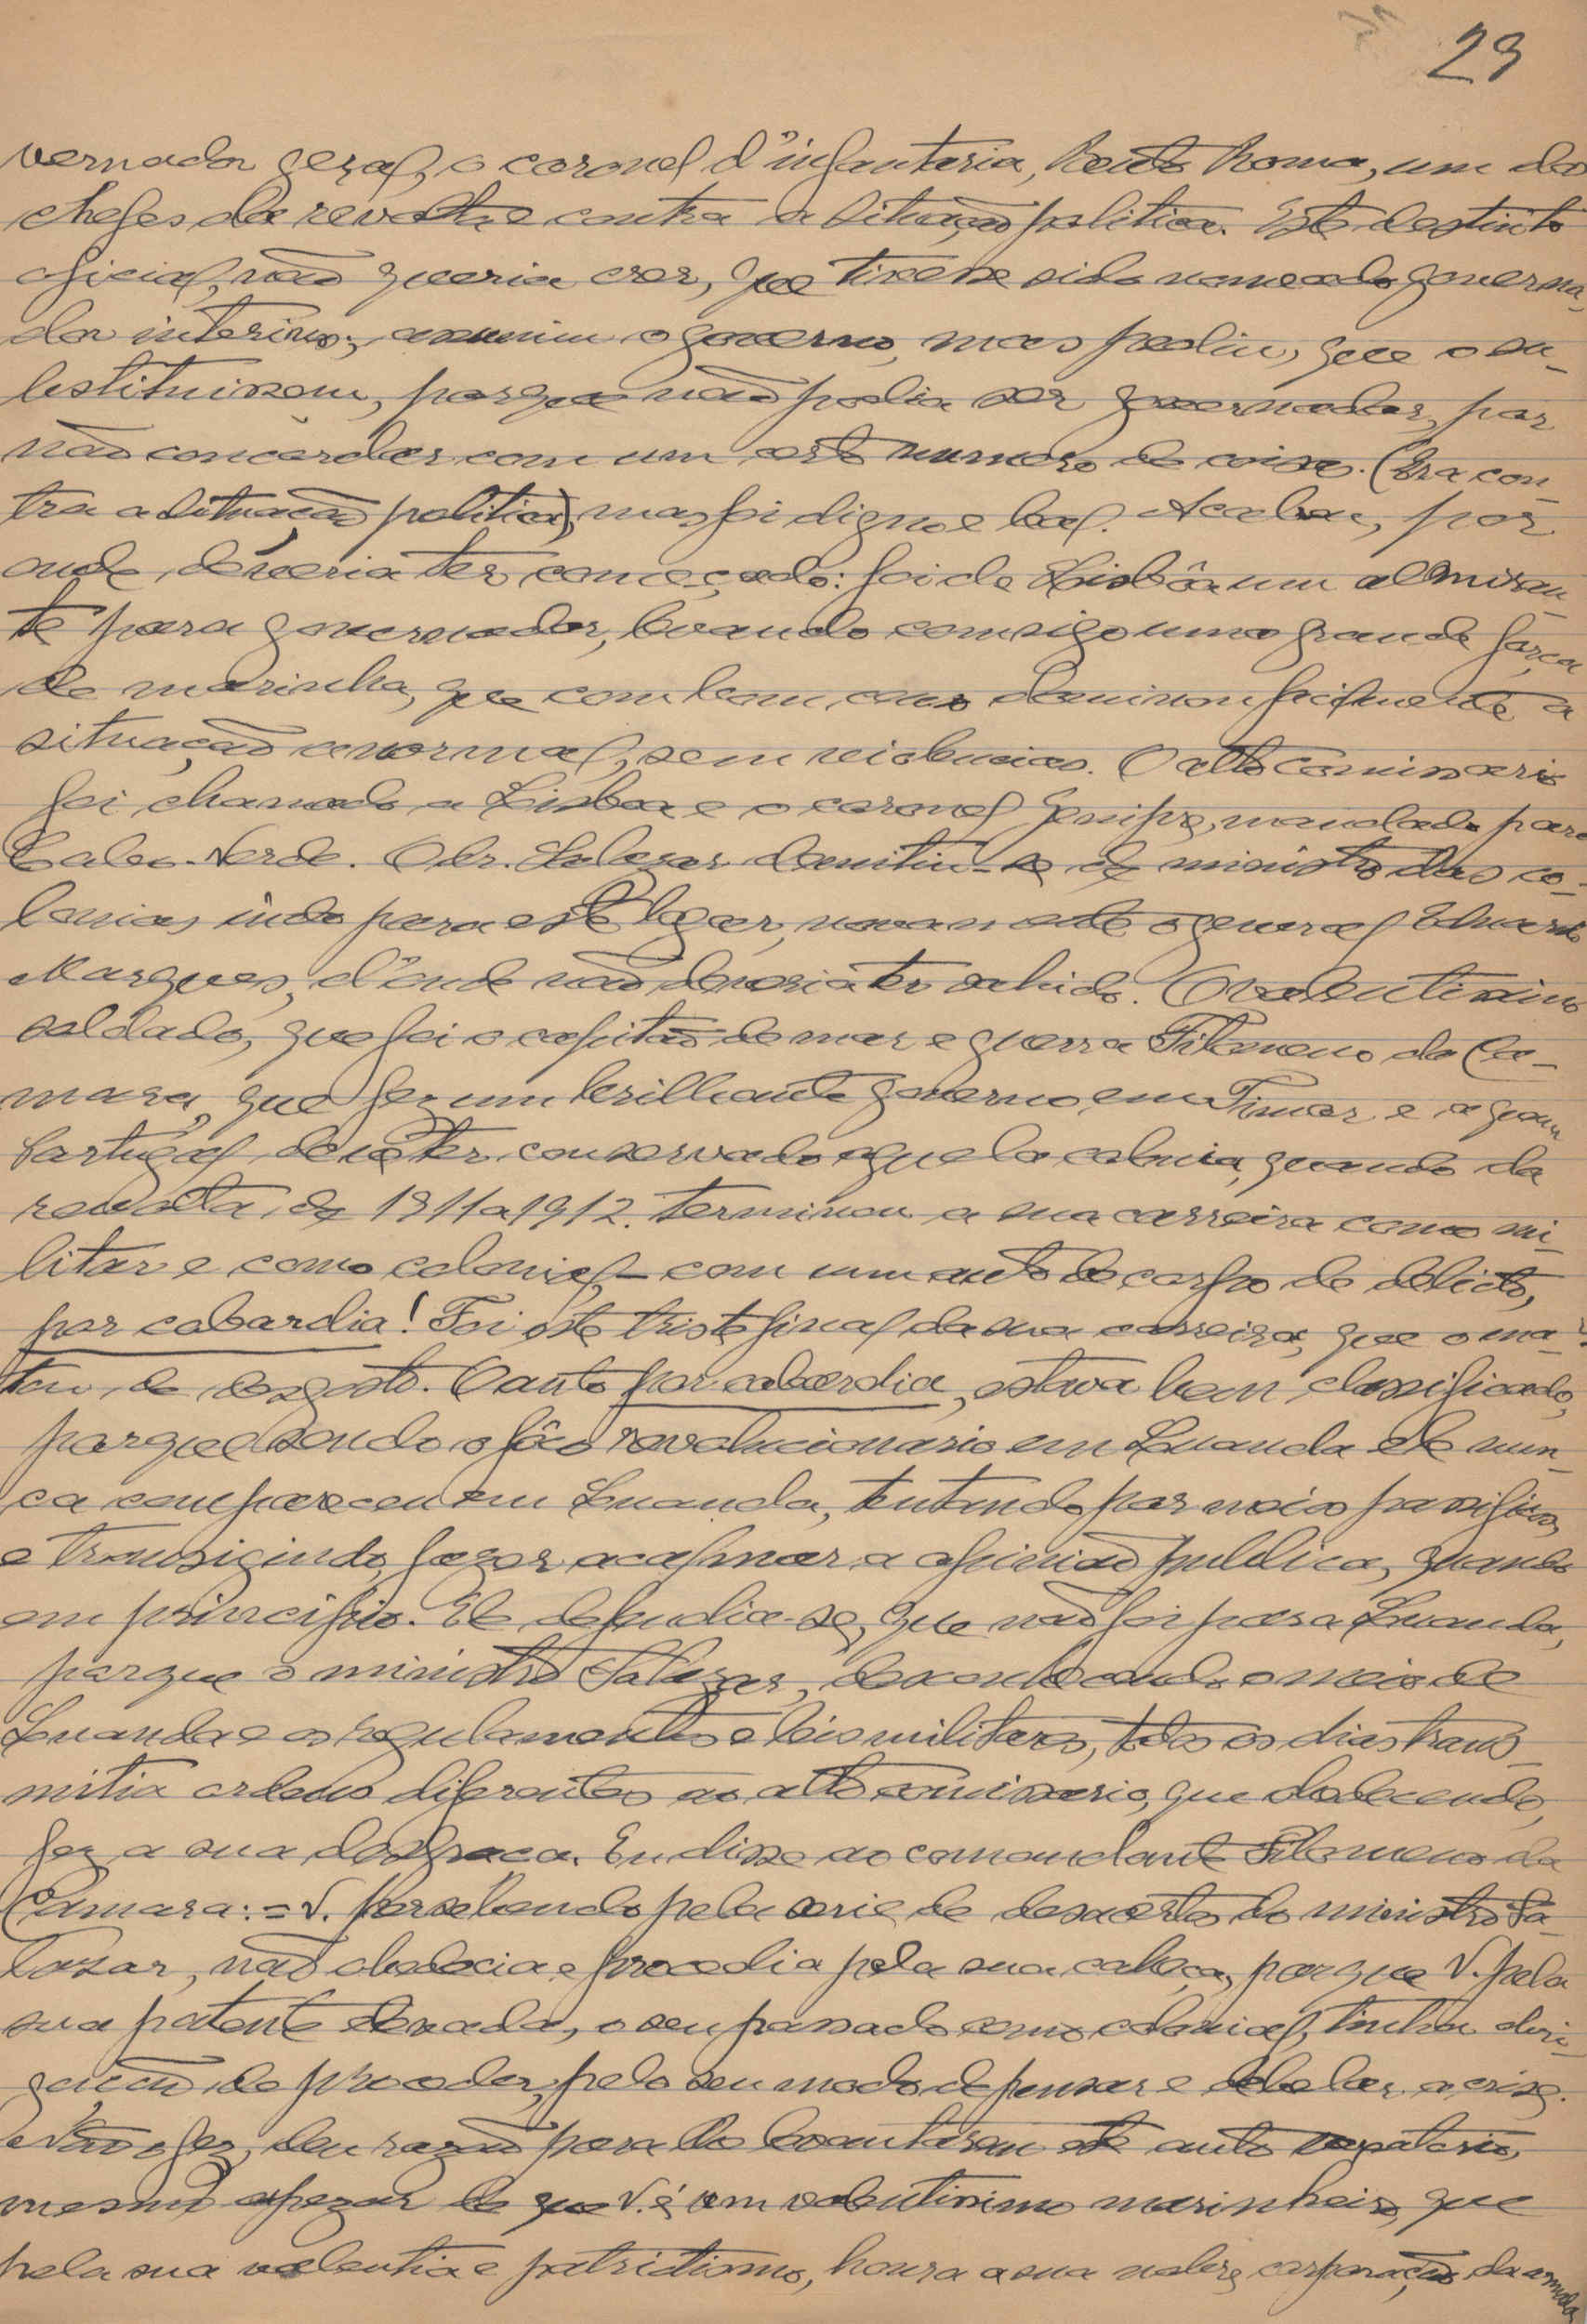 23
vernador geral, o coronel d'infanteria, Bento Roma, um dos
chefes da revolta e contra a situação politica. Este destinto
oficial, não queria crer, que tivesse sido nomeado governa-
dor interino; assumiu o governo, mas pediu, que o su-
bstituissem, porque não podia ser governador, por
não concordar com um certo numero de coisas. (Era con-
tra a situação politica), mas foi digno e leal. Acabou, por
onde, deveria ter começado: foi de Lisbôa um almiran-
te para governador, levando comsigo uma grande força
de marinha, que com bom senso dominou facilmente a
situação anormal, sem violencias. O alto comissario
foi chamado a Lisboa e o coronel Genipro, mandado para
Cabo-Verde. O dr. Salazar demitiu-se de ministro das co-
lonias, indo para este logar, novamente o general Eduardo
Marques, d'onde não deveria ter sahido. O valentissimo
soldado, que foi o capitão de mar e guerra Filomeno da Ca-
mara, que fez um brilhante governo, em Timor e a quem
Portugal deve ter conservado aquela colonia, quando da
revolta de 1911 a 1912. terminou a sua carreira como mi-
litar e como colonial - com um auto de corpo de delicto,
por cobardia! Foi este triste final da sua carreira, que o ma-
tou de desgosto. O auto por cobardia, estava bem classificado,
porque sendo o fóco revolucionario em Luanda ele nun-
ca compareceu em Luanda, tentando por meios passificos
e transigindo, fazer acalmar a opinião publica, quando
em principio. Ele defendia-se, que não foi para Luanda,
porque o ministro Salazar, desconhecendo o meio de
Luanda e os regulamentos e leis militares, todos os dias trans-
mitia ordens diferentes ao alto comissario, que obdecendo,
fez a sua desgraça. Eu disse ao comandante Filomeno da
Camara: = V. persebendo pela serie de desacertos do ministro Sa-
lazar, não obedecia e procedia pela sua cabeça, porque V. pela
sua patente elevada, o seu passado como colonial, tinha obri-
gação de proceder, pelo seu modo de pensar e debelar a crise.
Não o fez, deu razão para lho levantarem este auto vexatorio,
mesmo apezar de que V. é um valentissimo marinheiro, que
pela sua valentia e patriotismo, honra a sua nobre corporação da armada